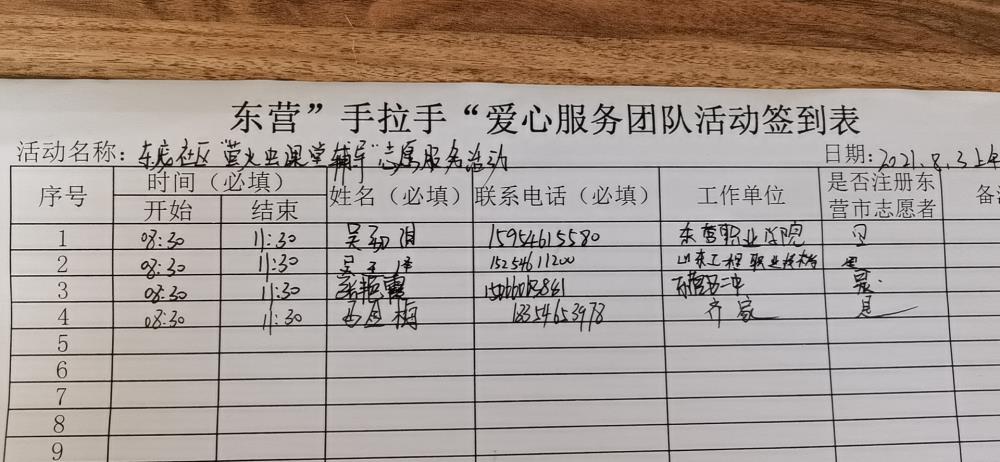 东营”手拉手“爱心服务团队活动签到表
活动名称：社区“萤火虫课堂辅导”志愿服务活动 日期：2021.8.3上午
序号 时间（必填） 姓名（必填） 联系电话（必填） 工作单位 是否注册东营市志愿者 备注
开始 结束
1 08:30 11:30 吴 15954615580 东营职业学院 是
2 08:30 11:30 吴 15254611200 山东工程职业技术 是
3 08:30 11:30 艳霞 东营 二中 是
4 08:30 11:30 梅 18354653978 齐家 是
5
6
7
8
9